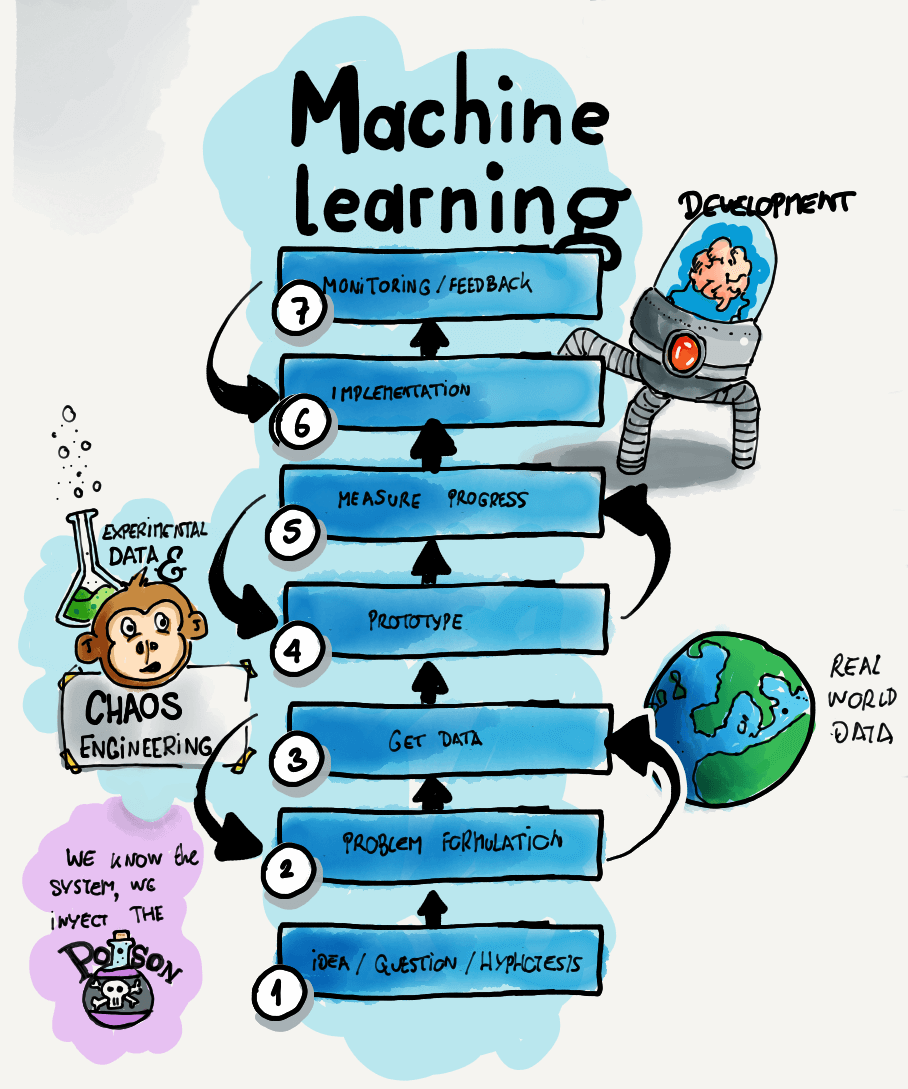 Machine
learning
DEVELOPMENT
MONITORING/FEEDBACK
7
IMPLEMENTATION
6
MEASURE PROGRESS
5
PROTOTYPE
4
GET DATA
3
PROBLEM FORMULATION
2
IDEA / QUESTION / HYPHOTESIS
1
EXPERIMENTAL
DATA &
CHAOS
ENGINEERING
REAL
WORLD
DATA
WE KNOW the
SYSTEM, WE
INYECT THE
POISON